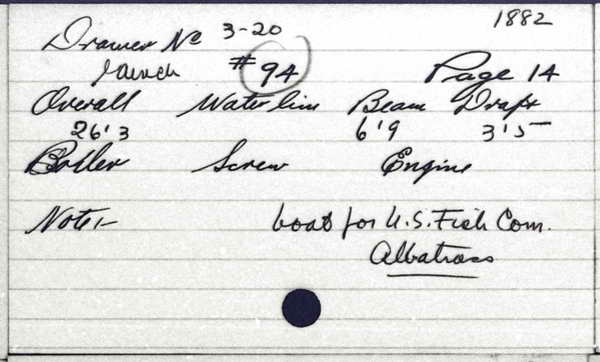 1882
Drawer No 3-20
launch #94 Page 14
Overall Waterline Beam Draft
26'3 6'9 3'5
Boiler Screw Engine
Note:- boat for U.S. Fish Com.
Albatross